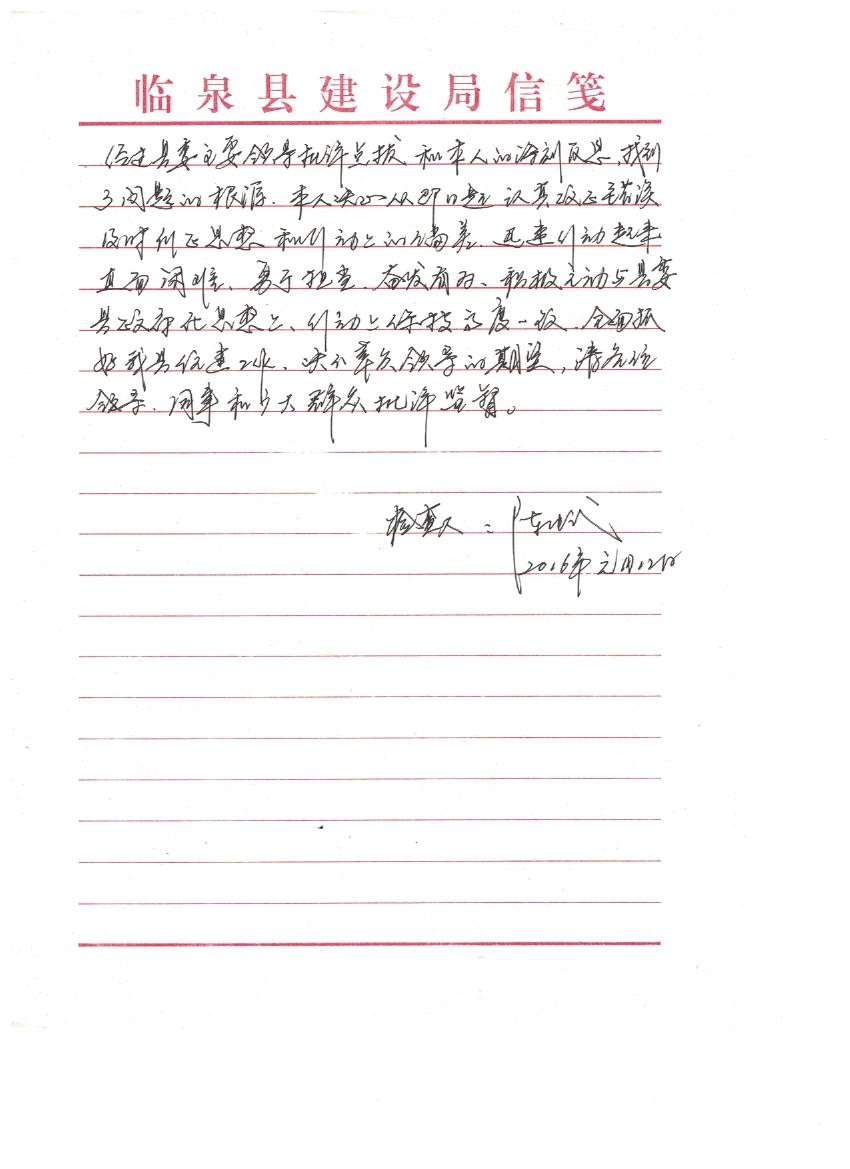 临泉县建设局信笺
经过县委主要领导批评点拨,和本人的深刻反思,找到
了问题的根源。本人决心从即日起,认真改正错误
及时纠正思想和行动上的偏差,迅速行动起来
直面困难、勇于担当、奋发有为、积极主动与县委
县政府在思想上、行动上保持高度一致,全面抓
好我县住建工作,决不辜负领导的期望,请各位
领导、同事和广大群众批评监督。
检查人:陈
2016年元月12日